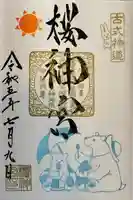 古式神道
桜神宮
令和五年七月九日